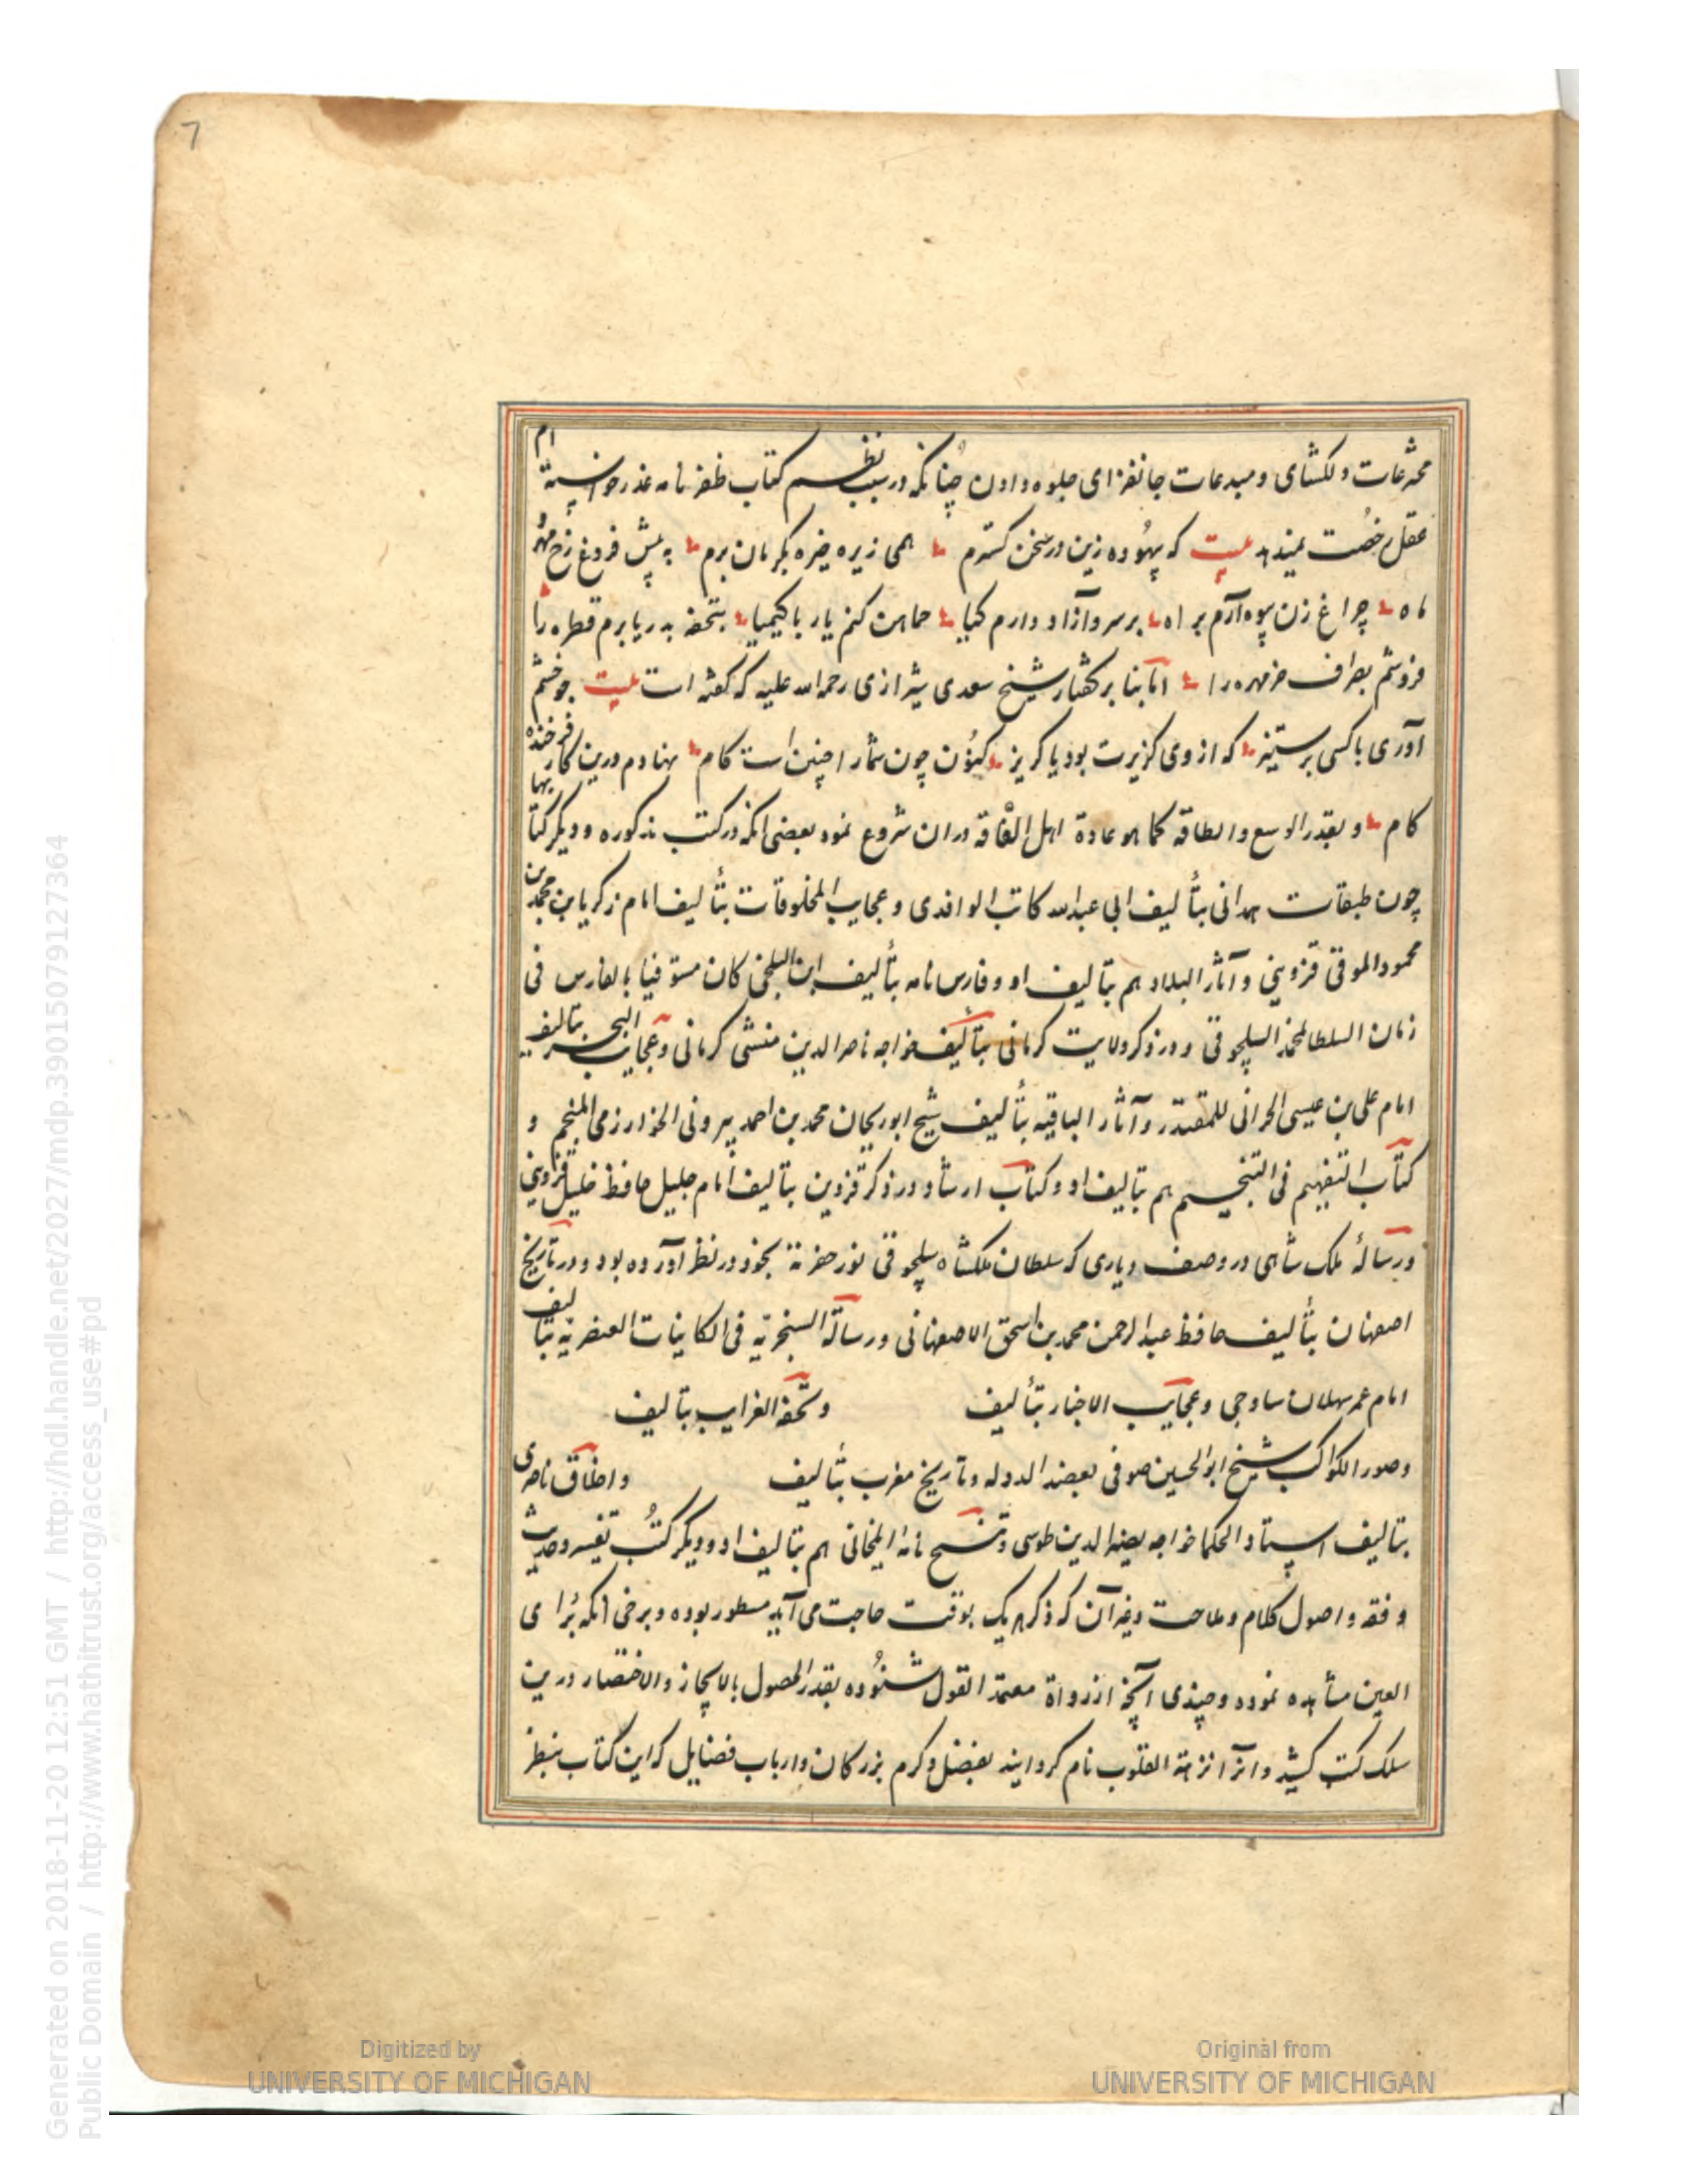 7
مخترعات دلکشای و مبدعات جانفزای جلوه دادن چنانکه در سبب نظم کتاب ظفرنامه عذر خواسته ام
عقل رخصت نمیدهد بیت که بیهوده زین در سخن گسترم همی زیره خیره بکرمان برم به پیش فروغ رخ مهر و
ماه چراغ زن پیوه آرم براه بر سرو آزاد دارم کیا حماهن کنم یار با کیمیا بتحفه بدریا برم قطره را
فروشم بصراف خرمهره را اما بنا بر گفتار شیخ سعدی شیرازی رحمه الله علیه که گفته است بیت چو خشم
آوری با کسی بر ستیز که از وی گزیرت بود یا گریز کنون چون شمار اچنین است کام نهادم درین کار فرخنده
کام و بقدر الوسع والطاقه کما هو عادة اهل الفاقه در ان شروع نمود بعضی انکه در کتب مذکوره و دیگر کتابها
چون طبقات همدانی بتألیف ابی عبدالله کاتب الواقدی و عجایب المخلوقات بتألیف امام زکریا بن محمد بن
محمود الموقی قزوینی و آثار البلاد هم بتالیف او و فارس نامه بتألیف ابن البلخی کان مستوفیا بالفارس فی
زمان السلطان محمد السلجوقی و در ذکر ولایت کرمانی بتألیف خواجه ناصرالدین منشی کرمانی و عجایب البحر بتالیف
امام علی بن عیسی الحرانی للمقتدر و آثار الباقیه بتألیف شیخ ابوریحان محمد بن احمد بیرونی الخوارزمی المنجم و
کتاب التفهیم فی التنجیم هم بتالیف او و کتاب ارشاد در ذکر قزوین بتالیف امام جلیل حافظ خلیل قزوینی
و رسالهٔ ملک شاهی در وصف دیاری که سلطان ملکشاه سلجوقی نور حفرته بخود در نظر آورده بود و در تاریخ
اصفهان بتألیف حافظ عبد الرحمن محمد بن اسحق الاصفهانی و رسالة السنجریّه فی الکاینات العنصریه بتالیف
امام عمر سهلان ساوجی و عجایب الاخبار بتألیف و تحفة الغرایب بتالیف
و صور الکواکب شیخ ابوالحسین صوفی بعضد الدوله و تاریخ مغرب بتألیف و اخلاق ناصری
بتالیف استاد الحکما خواجه نصیرالدین طوسی و تنسخ نامه ایلخانی هم بتالیف او و دیگر کتب تفسیر و حدیث
و فقه و اصول کلام و ملاحت و غیر آن که ذکر هر یک بوقت حاجت می آید مسطور بوده و برخی انکه برای
العین مشاهده نموده و چندی آنچه از رواة معتمد القول شنوده بقدر الحصول بالایجاز والاختصار درین
سلک کتب کشید و انرا نزهة القلوب نام گردانید بفضل و کرم بزرگان و ارباب فضایل که این کتاب بنظر
Digitized by
UNIVERSITY OF MICHIGAN
Original from
UNIVERSITY OF MICHIGAN
Generated on 2018-11-20 12:51 GMT / http://hdl.handle.net/2027/mdp.39015079127364
Public Domain / http://www.hathitrust.org/access_use#pd